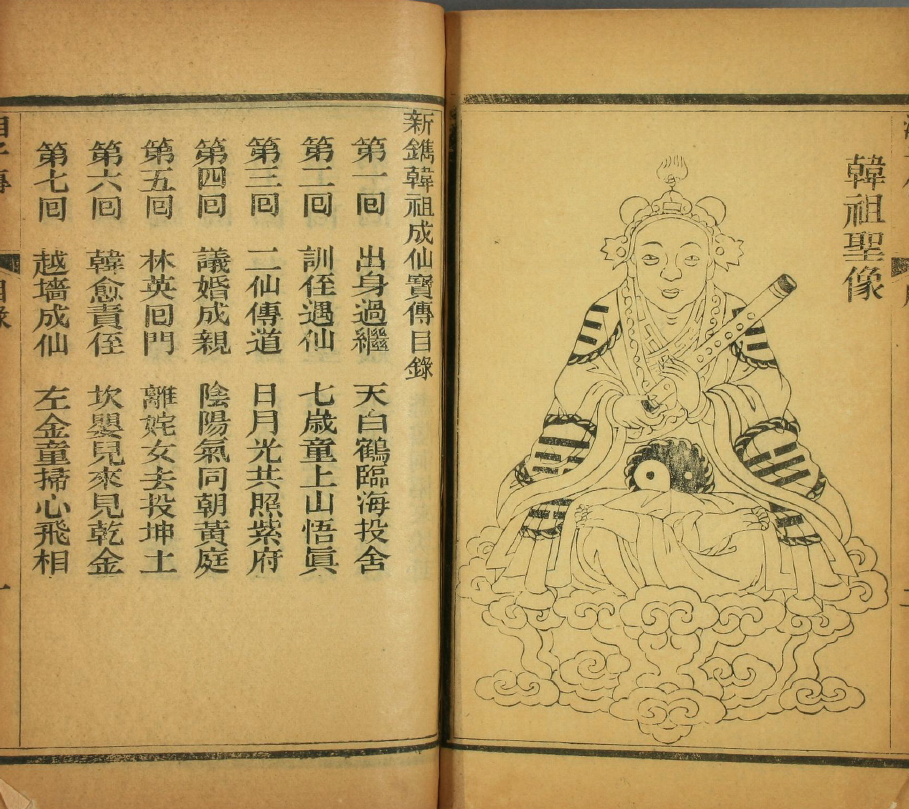 韓祖聖像
新鐫韓祖成仙寶傳目錄
第一回 出身過繼 天白鶴臨海投舍
第二回 訓侄遇仙 七歲童上山悟眞
第三回 二仙傳道 日月光共照紫府
第四回 議婚成親 陰陽氣同朝黃庭
第五回 林英回門 離姹女去投坤土
第六回 韓愈責侄 坎嬰兒來見乾金
第七回 越墻成仙 左金童掃心飛相